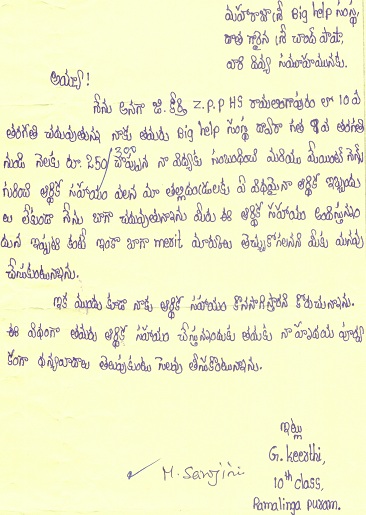 మహారాజశ్రీ Big help సంస్థ
దాత గారైన శ్రీ చాంద్ పాషా
వారి దివ్య సముఖమునకు.
అయ్యా!
నేను అనగా జి. కీర్తి Z.P.P HS రామలింగాపురం లో 10 వ
తరగతి చదువుతున్న నాకు తమరు Big help సంస్థ ద్వారా గత 8వ తరగతి
నుండి నెలకు రూ. 250/300 చొప్పున నా విద్యకు సంబంధించి మరియు మెయింటెనెన్సు
గురించి ఆర్థిక సహాయం వలన మా తల్లిదండ్రులకు ఏ విధమైన ఆర్థిక ఇబ్బందు
లు లేకుండా నేను బాగా చదువుతున్నాను మీరు ఈ ఆర్థిక సహాయం అందిస్తున్నం
దున ఇప్పటి కంటే ఇంకా బాగా merit మార్కులు తెచ్చుకోగలనని మీకు మనవి
చేసుకుంటున్నాను.
ఇక ముందు కూడా నాకు ఆర్థిక సహాయం కొనసాగిస్తారని కోరుచున్నాను.
ఈ విధంగా తమరు ఆర్థిక సహాయం చేస్తున్నందుకు తమకు నా హృదయ పూర్వ
కంగా ధన్యవాదాలు తెలుపుకుంటు సెలవు తీసుకొంటున్నాను.
ఇట్లు
G. keerthi,
10th class,
Ramalinga puram.
M. Sarojini